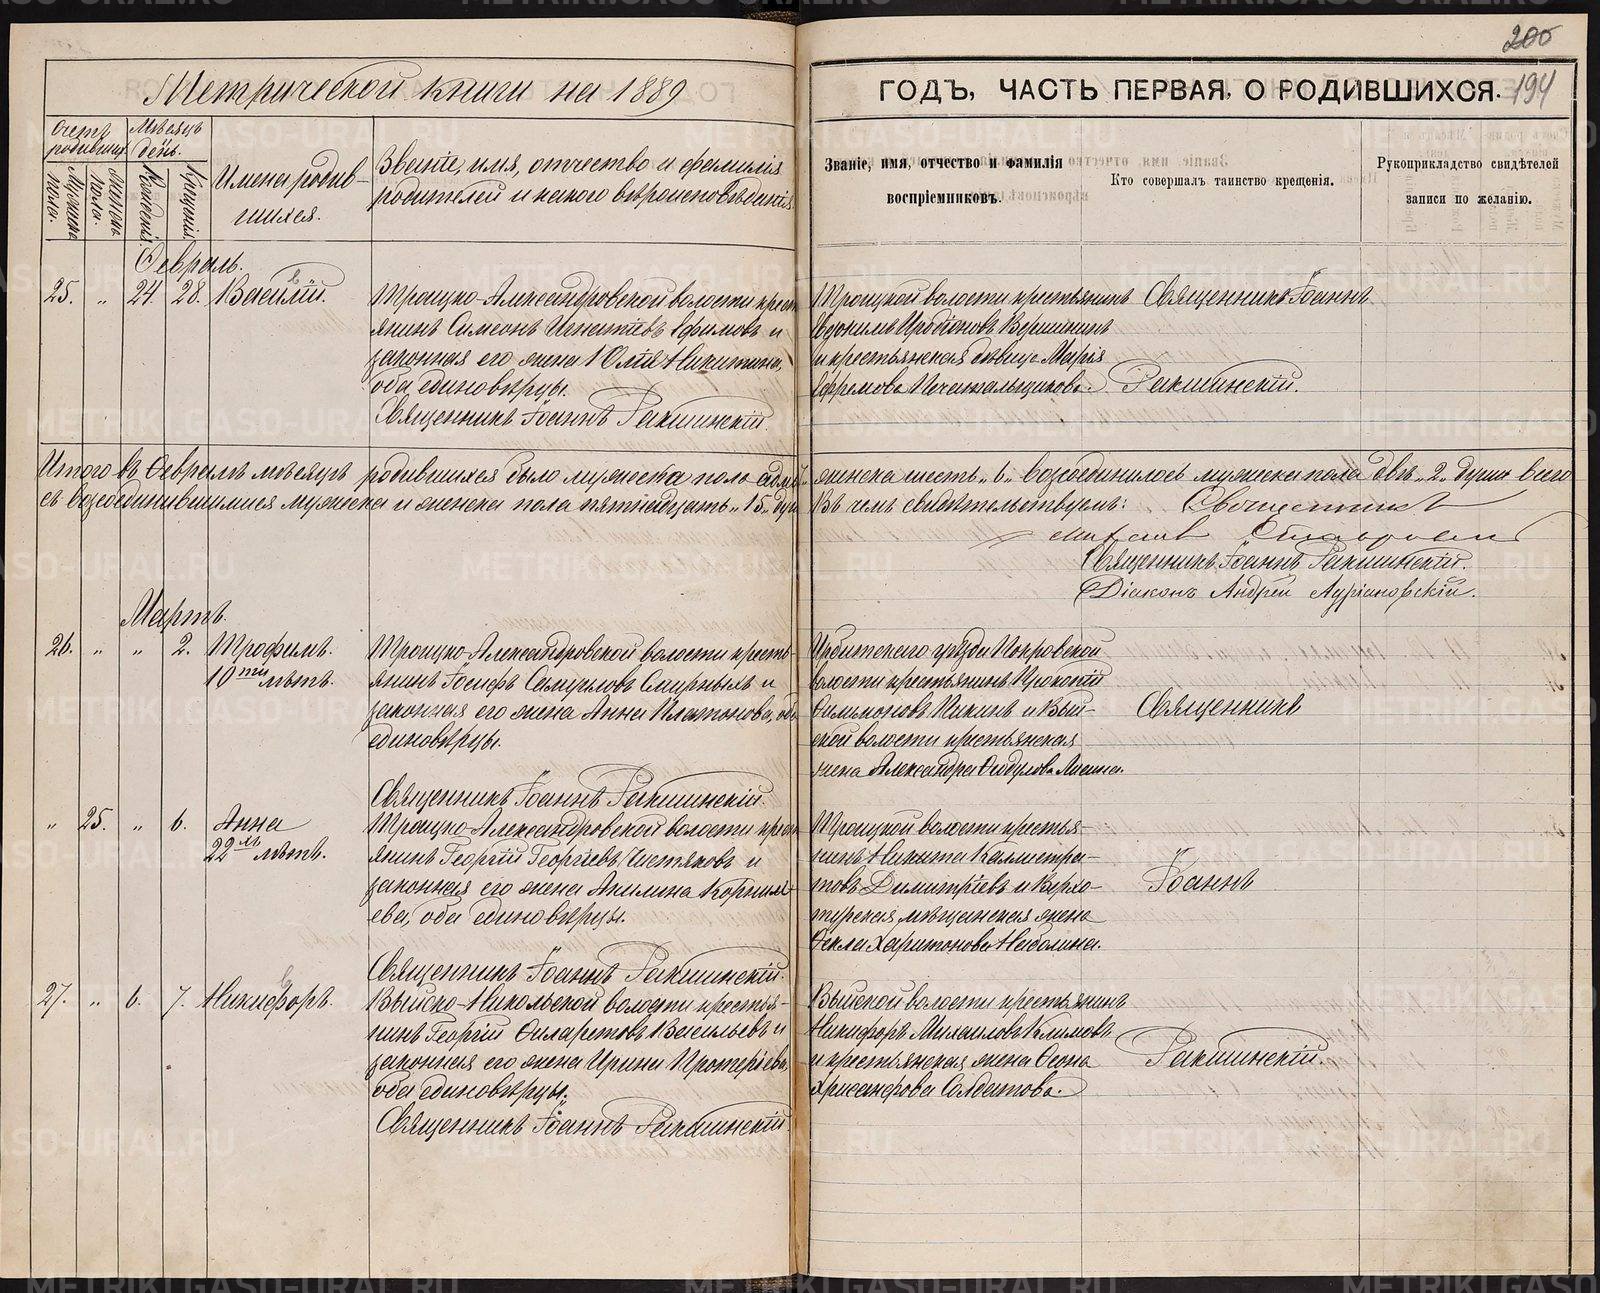 200
194
Метрической книги на 1889
ГОДЪ, ЧАСТЬ ПЕРВАЯ, О РОДИВШИХСЯ.
Счетъ родившихся.
Мужеска пола.
Женска пола.
Мѣсяцъ день.
Рожденія.
Крещенія.
Имена родив-
шихся.
Званіе, имя, отчество и фамилія
родителей и какого вѣроисповѣданія
Званіе, имя, отчество и фамилія
воспріемниковъ.
Кто совершалъ таинство крещенія.
Рукоприкладство свидѣтелей
записи по желанію.
Февраль.
25. „ 24. 28. Василій.
Троицко-Александровской волости крест-
янинъ Симеонъ Игнатіевъ Ефимовъ и
законная его жена Юлія Никитина,
оба единовѣрцы.
Священникъ Іоаннъ Ракшинскій.
Троицкой волости крестьянинъ
Евдокимъ Иродіоновъ Вершининъ
и крестьянская дѣвица Марія
Ефремова Печатальщикова.
Священникъ Іоаннъ
Ракшинскій.
Итого въ Февралѣ мѣсяцѣ родившихся было мужеска пола седмь женска шесть „6„ возсоединилось мужеска пола двѣ „2„ души всего
съ возсоединившимися мужеска и женска пола пятнадцать „15„ душ Въ чемъ свидѣтельствуемъ: Священникъ
Священникъ Іоаннъ Ракшинскій.
Діаконъ Андрей Адріановскій.
Мартъ.
26. „ „ 2. Трофимъ.
10ти лѣтъ.
Троицко-Александровской волости кресть-
янинъ Іосифъ Самуиловъ Смирныхъ и
законная его жена Анна Платонова, оба
единовѣрцы.
Священникъ Іоаннъ Ракшинскій.
Ирбитскаго уѣзда Покровской
волости крестьянинъ Прокопій
Филимоновъ и Вый-
ской волости крестьянская
жена Александра Ѳеодулова
Священникъ
„ 25. „ 6. Анна
22хъ лѣтъ.
Троицко-Александровской волости крест-
янинъ Георгій Георгіевъ Чистяковъ и
законная его жена Акилина Корнил-
ева, оба единовѣрцы.
Священникъ Іоаннъ Ракшинскій.
Троицкой волости кресть-
янинъ Никита Калистра-
товъ Димитріевъ и Верхо-
турская мѣщанская жена
Ѳекла Харитонова
Іоаннъ
27. „ 6. 7. Никифоръ.
Выйско-Никольской волости крестья-
нинъ Георгій Филаретовъ Васильевъ и
законная его жена Ирина
оба единовѣрцы.
Священникъ Іоаннъ Ракшинскій.
Выйской волости крестьянинъ
Никифоръ Михаиловъ Климовъ
и крестьянская жена
Хрисанфова Солдатова.
Ракшинскій.
METRIKI.GASO-URAL.RU